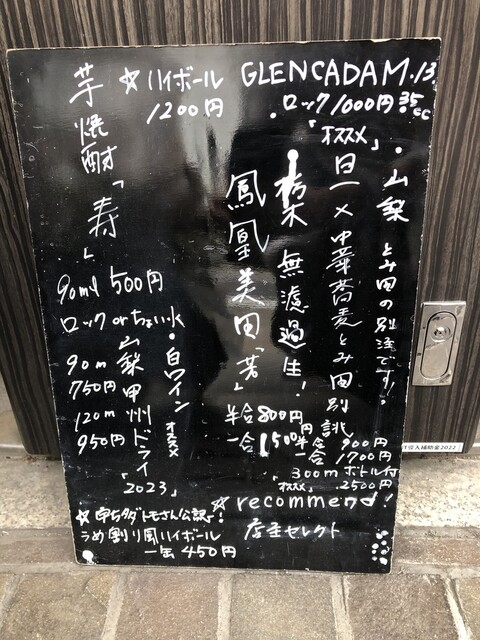 GLENCADAM.13
・ロック1000円 35cc
☆ハイボール
1200円
「オススメ」
・山梨 とみ田の別注です!
日一×中華蕎麦とみ田別誂
半合 900円
一合 1700円
300m ボトル付
「オススメ」 2500円
栃木 無濾過生!
鳳凰美田「芳」
半合 800円
一合 1500円
芋焼酎「寿」
90ml 500円
ロック orちょい水
・白ワイン オススメ
山梨甲州ドライ「2023」
90m
750円
120m
950円
☆recommend!
店主セレクト
うめ割り風ハイボール
一缶450円